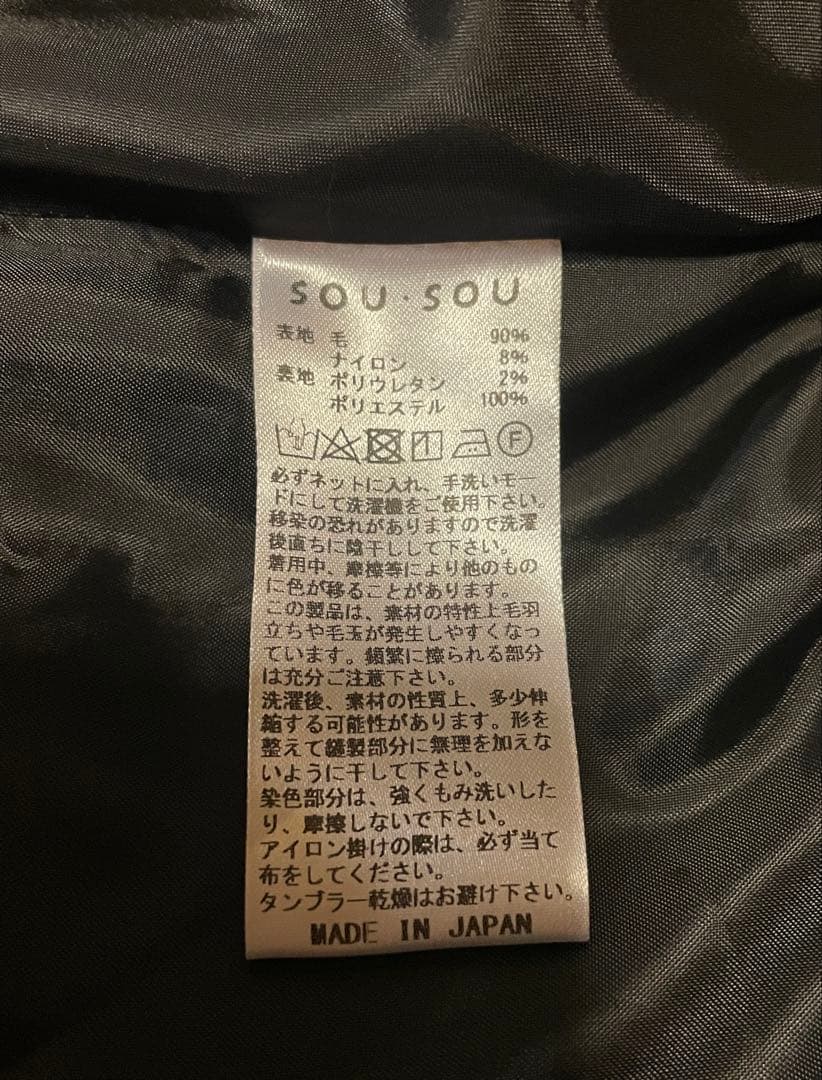 SOU・SOU
表地 毛 90%
ナイロン 8%
裏地 ポリウレタン 2%
ポリエステル 100%
F
必ずネットに入れ、手洗いモー
ドにして洗濯機をご使用下さい。
移染の恐れがありますので洗濯
後直ちに陰干しして下さい。
着用中、摩擦等により他のもの
に色が移ることがあります。
この製品は、素材の特性上毛羽
立ちや毛玉が発生しやすくなっ
ています。頻繁に擦られる部分
は充分ご注意下さい。
洗濯後、素材の性質上、多少伸
縮する可能性があります。形を
整えて縫製部分に無理を加えな
いように干して下さい。
染色部分は、強くもみ洗いした
り、摩擦しないで下さい。
アイロン掛けの際は、必ず当て
布をしてください。
タンブラー乾燥はお避け下さい。
MADE IN JAPAN